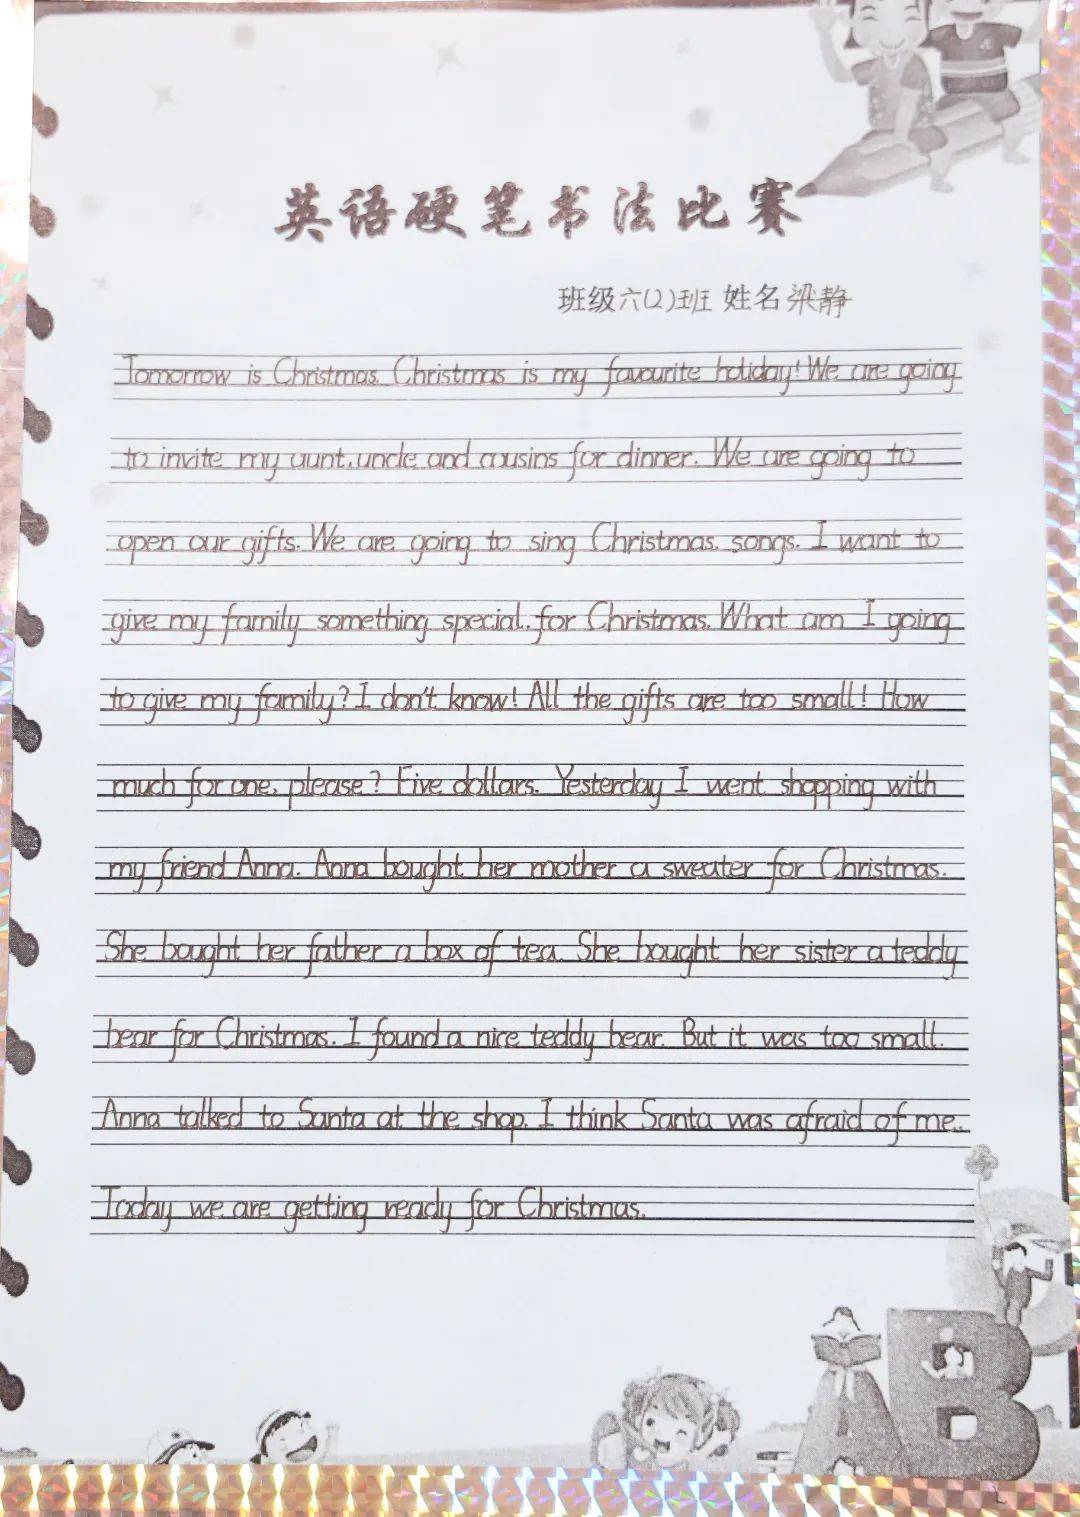 英语硬笔书法比赛
班级六(2)班 姓名梁静
Tomorrow is Christmas. Christmas is my favourite holiday! We are going
to invite my aunt, uncle and cousins for dinner. We are going to
open our gifts. We are going to sing Christmas. songs. I want to
give my family something special. for Christmas. What am I going
to give my family? I don't know! All the gifts are too small! How
much for one, please? Five dollars. Yesterday I went shopping with
my friend Anna. Anna bought her mother a sweater for Christmas.
She bought her father a box of tea. She bought her sister a teddy
bear for Christmas. I found a nice teddy bear. But it was too small.
Anna talked to Santa at the shop. I think Santa was afraid of me..
Today we are getting ready for Christmas.
AB